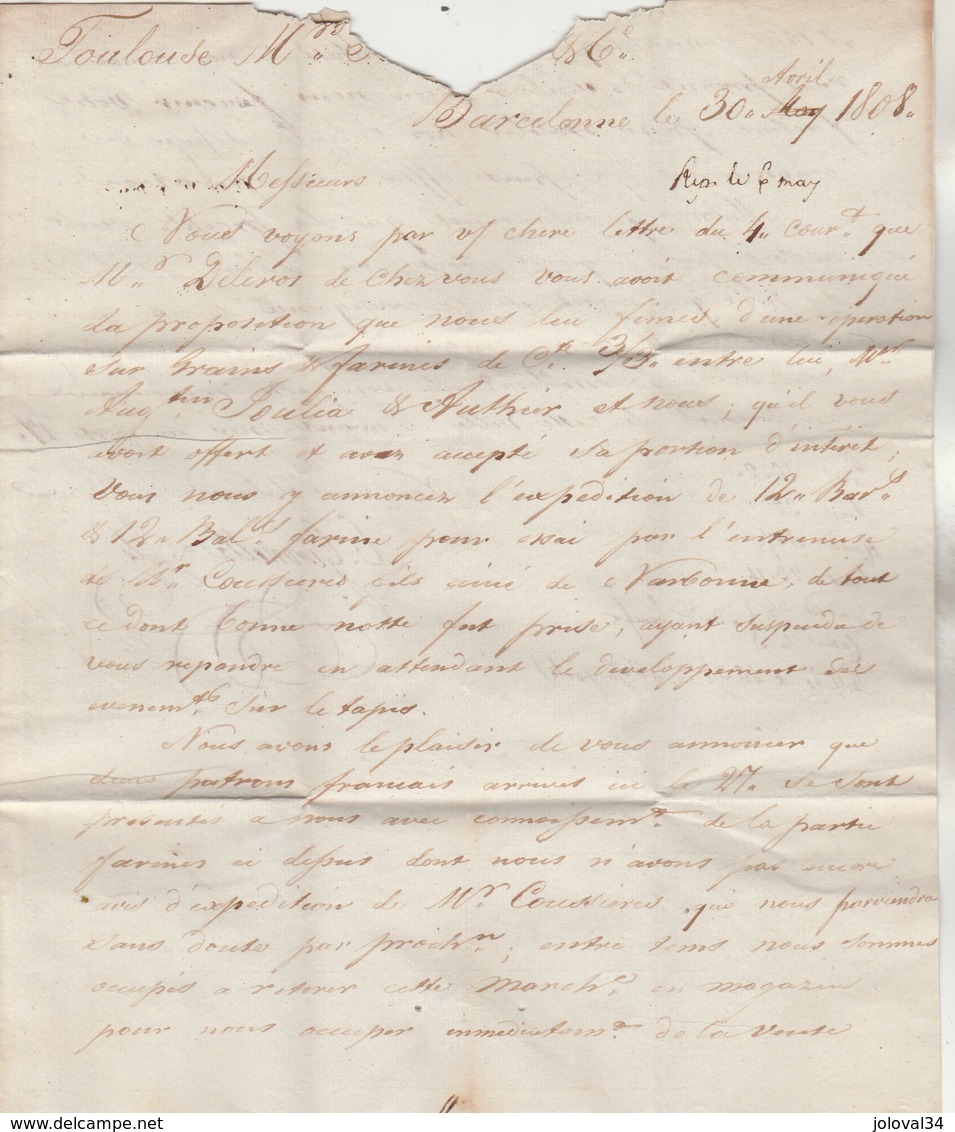 Toulouse Mrs. & Ce.
Barcelonne le 30. Avril May 1808.
Messieurs
Repe. le 6 may
Nous voyons par v/ chere lettre du 4. Courat. que
Mr. Deleros de chez vous vous avoit communiqué
La proposition que nous lui fimes d'une operation
sur Grains & farines de Cte. 3/3. entre lui, Mrs
Augtin Joulia & Authier et nous; qu'il vous
avoit offert et avez accepté sa portion d'intérêt,
vous nous y annoncez l'expedition de 12. Bars
& 12. Bals. farine pour essai par l'entremise
de Mr. Coussieres fils ainé de Narbonne, de tout
ce dont bonne notte fut prise, ayant suspendu de
vous repondre en attendant le developpement des
evenemts. sur le tapis.
Nous avons le plaisir de vous annoncer que
deux patrons francais arrivés ici le 27. se sont
presentés a nous avec connoissemt. de la partie
farines ci dessus dont nous n'avons pas encore
avis d'expedition de Mr. Coussieres que nous parviendra
sans doute par prochn.; entre tems nous sommes
occupés a retirer cette marche. en magazin
pour nous occuper immediatemt. de la vente
delcampe.net
joloval34